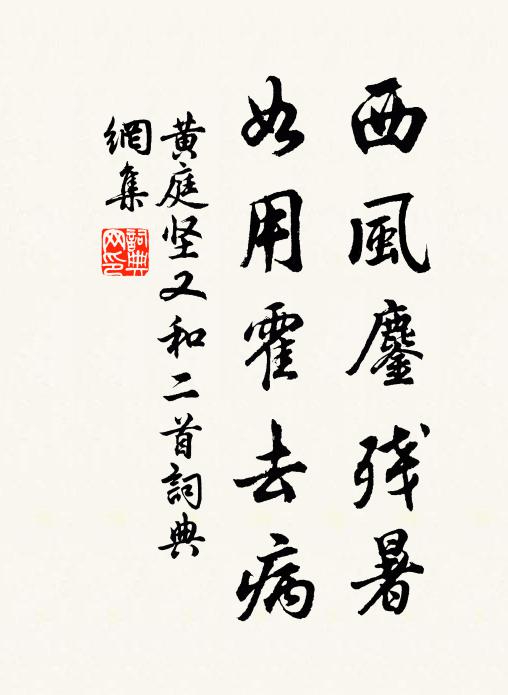 西風鏖残暑
如用霍去病
黄庭坚又和二首詞典
網集
詞典
网印